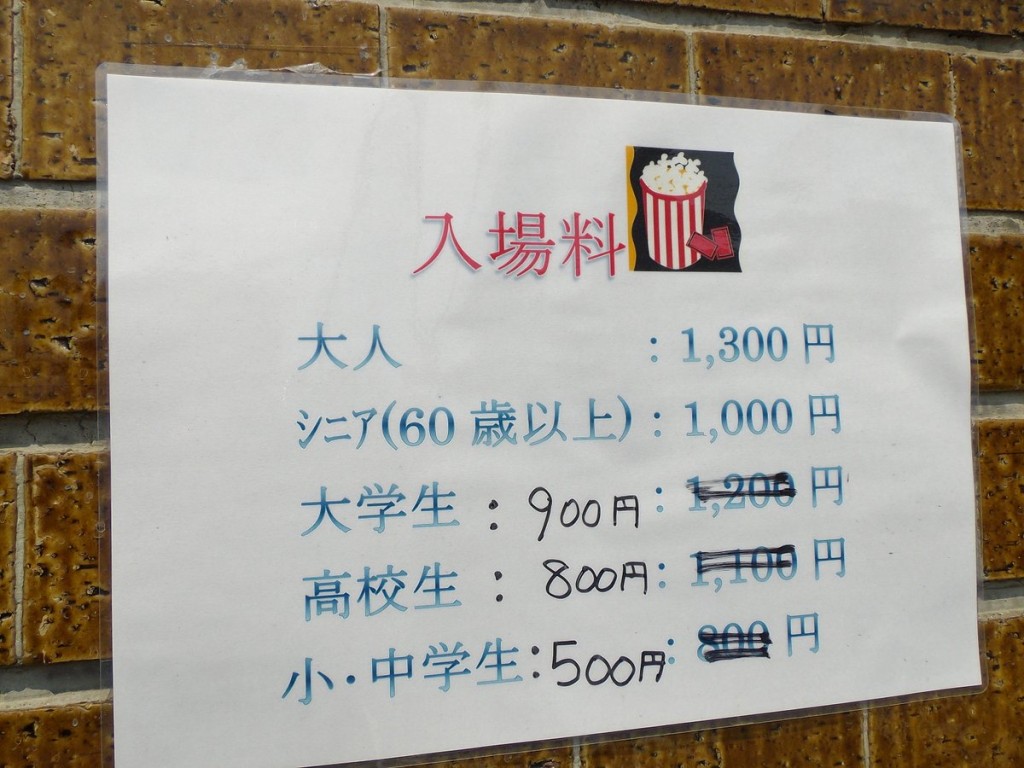 入場料
大人 : 1,300 円
シニア(60 歳以上) : 1,000 円
大学生 : 900円 : 1,200 円
高校生 : 800円 : 1,100 円
小・中学生 : 500円 : 800 円